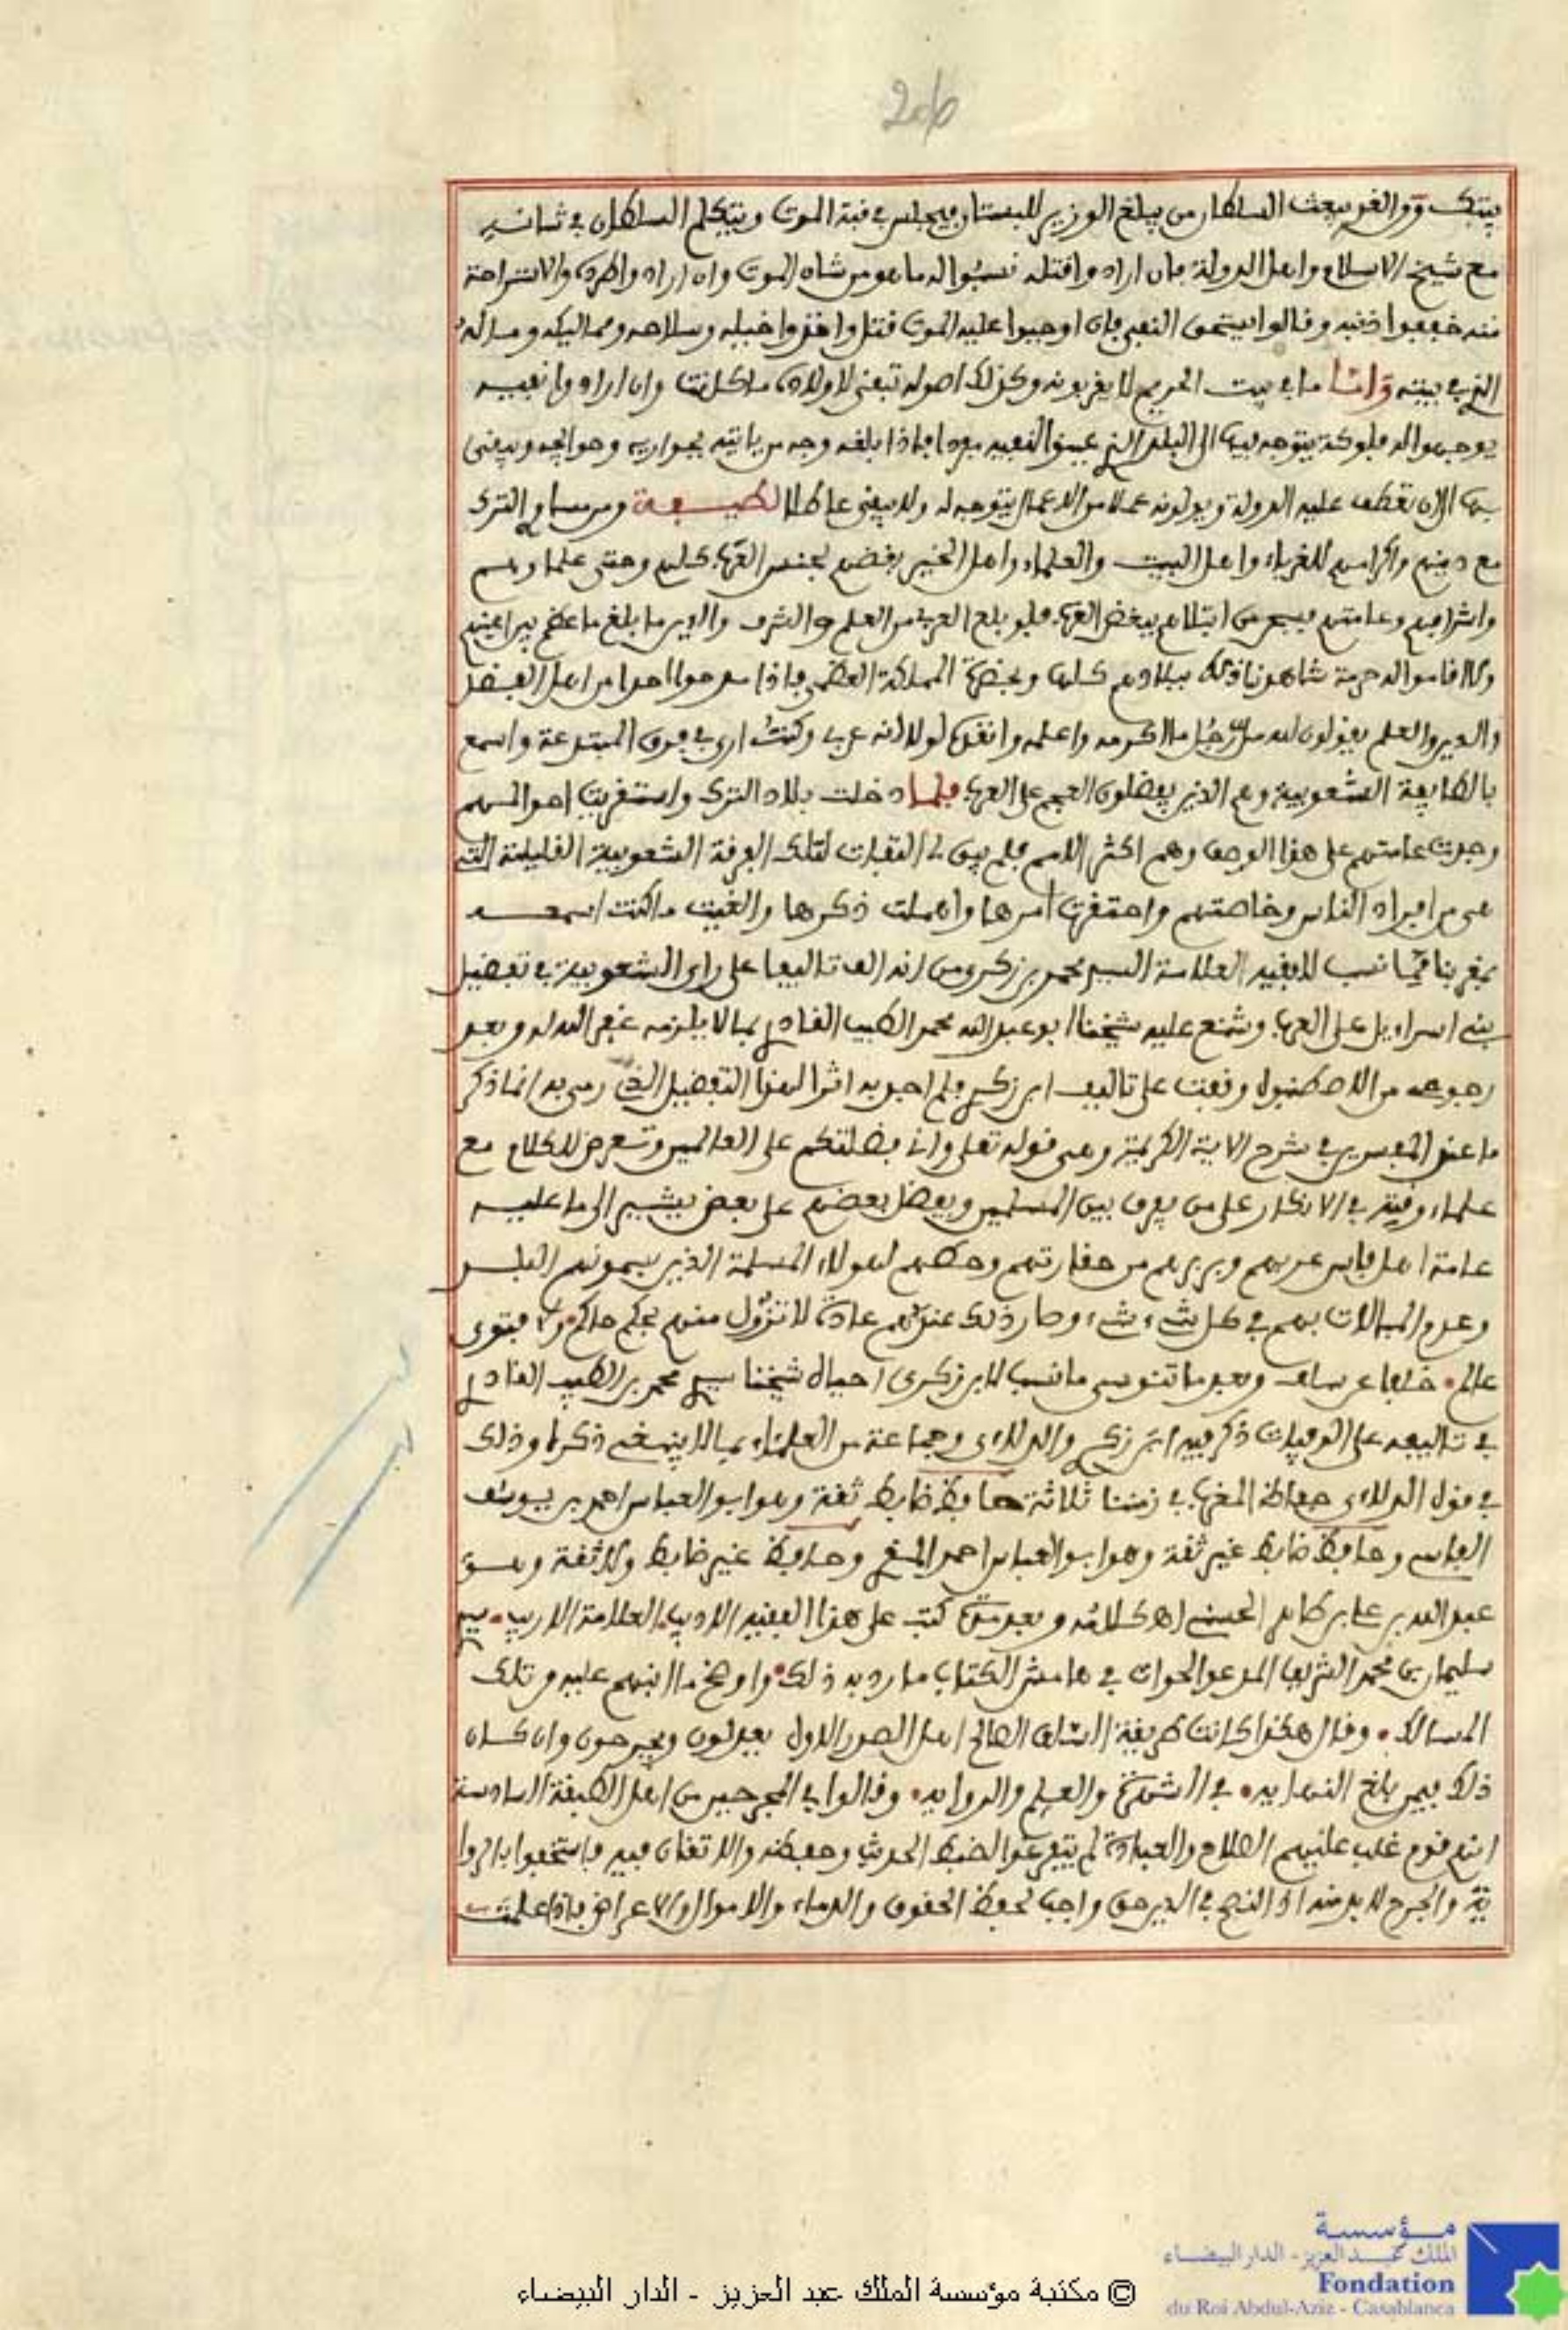 206
ومن الغد يبعث السلطان من يبلغ الوزير للبستان فيجلس في قبة الموت ويتكلم السلطان في شانه
مع شيخ الاسلام واهل الدولة فان ارادوا قتله نسبوا له ما هو من شان الموت وان ارادوا طرده والاستراحة
منه خففوا ذنبه وقالوا يستحق النفي فان اوجبوا عليه الموت قتل واخذوا خيله وسلاحه ومماليكه وماله
الذي في بيته واما ما في بيت الحريم لا يقربونه وكذلك اصوله تبقى لاولاده ما كانت وان ارادوا نفيه
يوجهوا له فلوكة يتوجه فيها الى البلد الذي عينوا لنفيه فيه فاذا بلغه وجه من ياتيه بجواريه وحوايجه ويبقى
بها الى ان تعطف عليه الدولة ويولونه عملا من الاعمال يتوجه له ولا يبقى عاطلا لطيفة ومن مساوي الترك
مع دينهم واكرامهم للغرباء واهل البيت والعلماء واهل الخير بغضهم لجنس العرب كلهم وحتى علماؤهم
واشرافهم وعامتهم فسبحان من ابتلاهم ببغض العرب فلو بلغ العربي من العلم والشرف والدين ما بلغ ما عظم في اعينهم
ولا اقاموا له حرمة شاهدنا ذلك ببلادهم كلها وبحضرة المملكة العظمى فاذا مدحوا احدا من اهل الفضل
والدين والعلم يقولون لله من رجل ما اكرمه واعلمه واتقاه لولا انه عربي وكنت ارى في فرق المبتدعة واسمع
بالطايفة الشعوبية وهم الذين يفضلون العجم على العرب فلما دخلت بلاد الترك واستقريت احوالهم
وجدت عامتهم على هذا الوصف وهم اكثر الامم فلم يبق لي التفات لتلك الفرقة الشعوبية القليلة التي
هي من افراد الناس وخاصتهم واحتقرت امرها واهملت ذكرها والغيت ما كنت اسمعه
بمغربنا فيما نسب للفقيه العلامة السيد محمد بن زكري من انه الف تاليفا على راي الشعوبية في تفضيل
بني اسراءيل على العرب وشنع عليه شيخنا ابو عبد الله محمد الطيب القادري بما لا يلزمه غفر الله له وبعد
رجوعه من الاصطنبول وقفت على تاليف ابن زكري فلم اجد به اثرا لهذا التفضيل الذي رمي به انما ذكر
ما عند المفسرين في شرح الاية الكريمة وهي قوله تعلى واني فضلتكم على العالمين وتعرض للكلام مع
علماء وقته في الانكار على من يفرق بين المسلمين ويفضل بعضهم على بعض يشير الى ما عليه
عامة اهل فاس عربهم وبربرهم من حقارتهم وحطهم لهولاء المسلمة الذين يسمونهم البلد
وعدم المبالات بهم في كل شيء شيء وصار ذلك عندهم عادة لا تزول منهم بحكم حاكم ولا فتوى
عالم خلفا عن سلف وبعد ما تنوسي ما نسب لابن زكري احياه شيخنا سيدي محمد بن الطيب القادري
في تاليفه على الوفيات ذكر فيه ابن زكري والدلاءي وجماعة من العلماء بما لا ينبغي ذكره وذلك
في قول الدلاءي حفاظ المغرب في زمننا ثلاثة حافظ ضابط ثقة وهو ابو العباس احمد بن يوسف
الفاسي وحافظ ضابط غير ثقة وهو ابو العباس احمد المقري وحافظ غير ضابط ولا ثقة وهو
عبد الله بن علي بن طاهر الحسني اهـ كلامه وبعد مدة كتب على هذا الفقيه الاديب العلامة الاريب سيدي
سليمان بن محمد الشريف المدعو الحوات في هامش الكتاب ما رد به ذلك واوضح ما انبهم عليه من تلك
المسالك وقال هكذا كانت طريقة السلف الصالح اهل الصدر الاول يعدلون ويجرحون وان كان
ذلك فيمن بلغ النهاية في الشهرة والعلم والرواية وقالوا في المجرحين من اهل الطبقة السادسة
انهم قوم غلب عليهم الصلاح والعبادة لم يتفرغوا لضبط الحديث وحفظه والاتقان فيه فاستخفوا بالروا
ية والجرح لا بد منه اذ النصح في الدين حق واجب لحفظ الحقوق والدماء والاموال والاعراض فاذا علمت
مؤسسة
الملك عبد العزيز - الدار البيضاء
Fondation
du Roi Abdul-Aziz - Casablanca
© مكتبة مؤسسة الملك عبد العزيز - الدار البيضاء